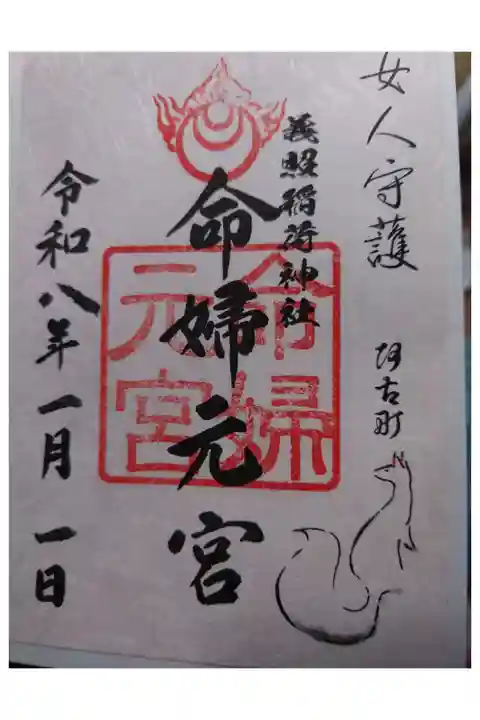 女人守護
阿古町
義照稲荷神社
命婦元宮
命婦元宮
令和八年一月一日